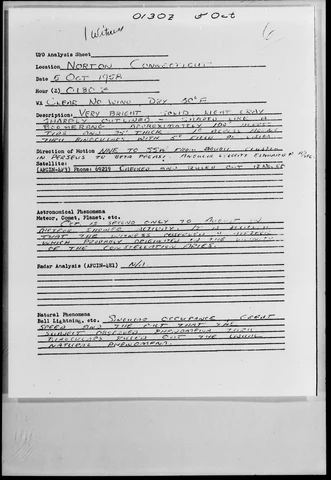 0130Z 5 Oct
1 Witness
UFO Analysis Sheet
Location NORTON CONNECTICUT
Date 5 OCT 1958
Hour (Z) 0130Z
WX CLEAR NO WIND DRY 50°F
Description: VERY BRIGHT SOLID LIGHT GRAY
SHARPLY OUTLINED - SHAPED LIKE A
BOOMERANG - APPROXIMATELY 100'
AND 25' THICK
THRU BINOCULARS WITH 5° FIELD OF VISION
Direction of Motion NNE TO SSW FROM DOUBLE CLUSTER
IN PERSEUS TO BETA PEGASI ANGULAR VELOCITY
Satellite:
(AFCIN-4E4) Phone: 69219 CHECKED AND RULED OUT
Astronomical Phenomena
Meteor, Comet, Planet, etc. OCT. IS SECOND ONLY TO AUGUST IN
METEOR SHOWER ACTIVITY. IT IS
THAT THE WITNESS OBSERVED A METEOR
WHICH PROBABLY ORIGINATED IN THE VICINITY
OF THE CONSTELLATION ARIES.
Radar Analysis (AFCIN-4E1) N/A
Natural Phenomena
Ball Lightning, etc. SINGULAR OCCURANCE, GREAT
SPEED AND THE FACT THAT THE
SUBJECT OBSERVED PHENOMENA THRU
BINOCULARS RULED OUT THE USUAL
NATURAL PHENOMENA.